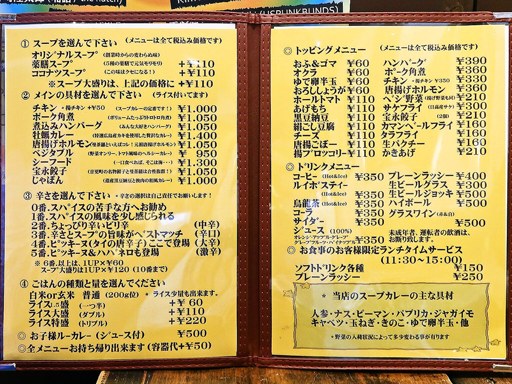 USPUNKBUNDS)
① スープを選んで下さい (メニューは全て税込み価格です)
オリジナルスープ (創業時からの変わらぬ味)
薬膳スープ (5種の薬膳で元気モリモリ) +¥110
ココナツスープ (この味はクセになる!) +¥110
※スープ大盛りは、上記の価格に +¥110
② メインの具材を選んで下さい (ライス付いてます)
チキン ・揚チキン +¥50 (スープカレーの定番です!) ¥1.050
ポーク角煮 ¥1.050
煮込みハンバーグ (みんな大好きハンバーグ) ¥1.050
牡蠣カレー ¥1.400
唐揚ホルモン ¥1.050
ベジタブル ¥950
シーフード ¥1.130
宝水餃子 ¥1.050
じゃぽん ¥1.050
③ 辛さを選んで下さい ・辛さの選択は自己責任でお願いします!
0番、スパイスの苦手な方へお勧め
1番、スパイスの風味を少し感じられる
2番、ちょっぴり辛いピリ辛 (中辛)
3番、辛さとスープの旨みがベストマッチ (辛口)
4番、ピッキーヌ(タイの唐辛子)ここで登場 (大辛)
5番、ピッキーヌ&ハバネロも登場 (激辛)
※6番、以上は、1UP×¥60
スープ大盛りは1UP×¥120 (10番まで)
④ ごはんの種類と量を選んでください
白米or玄米 普通 (200g位) ・ライス少量も出来ます。
ライス1.5盛 (一つ半) +¥ 60
ライス大盛 (ダブル) +¥110
ライス特盛 (トリプル) +¥220
◎ お子様ルーカレー (ジュース付) ¥500
◎全メニューお持ち帰り出来ます (容器代+¥50)
◎ トッピングメニュー (メニューは全て税込み価格です)
おふ&ゴマ ¥60
オクラ ¥60
ゆで卵半玉 ¥60
おろししょうが ¥60
ホールトマト ¥110
あげもち ¥110
黒豆納豆 ¥110
絹ごし豆腐 ¥110
チーズ ¥110
唐揚ごぼー ¥110
揚ブロッコリー ¥160
ハンバーグ ¥390
ポーク角煮 ¥330
チキン ¥360
唐揚げホルモン ¥360
ベジ野菜 ¥210
ザケフライ ¥300
宝水餃子 ¥210
カマンベールフライ ¥160
クラフライ ¥160
生パクチー ¥160
かきあげ ¥210
◎ ドリンクメニュー
コーヒー (Hot&Ice) ¥350
ルイボスティー (Hot&Ice)
烏龍茶 (Hot&Ice) ¥350
コーラ ¥350
サイダー ¥350
ジュース (100%) ¥350
プレーンラッシー ¥400
生ビールグラス ¥300
生ビールジョッキ ¥500
ハイボール ¥500
グラスワイン (赤&白) ¥500
未成年者、運転者の飲酒は、
お断り致します。
◎ お食事のお客様限定ランチタイムサービス
(11:30~15:00)
ソフトドリンク各種 ¥150
プレーンラッシー ¥250
* 当店のスープカレーの主な具材
人参・ナス・ピーマン・パプリカ・ジャガイモ
キャベツ・玉ねぎ・きのこ・ゆで卵半玉・他
・野菜の入荷状況によって多少変わる事が有ります